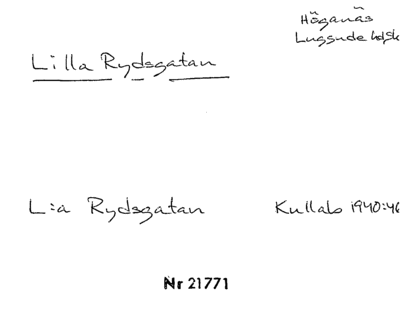 Höganäs
Luggude hd, Sk
Lilla Rydsgatan
L:a Rydsgatan Kullab 1940:46
Nr 21771